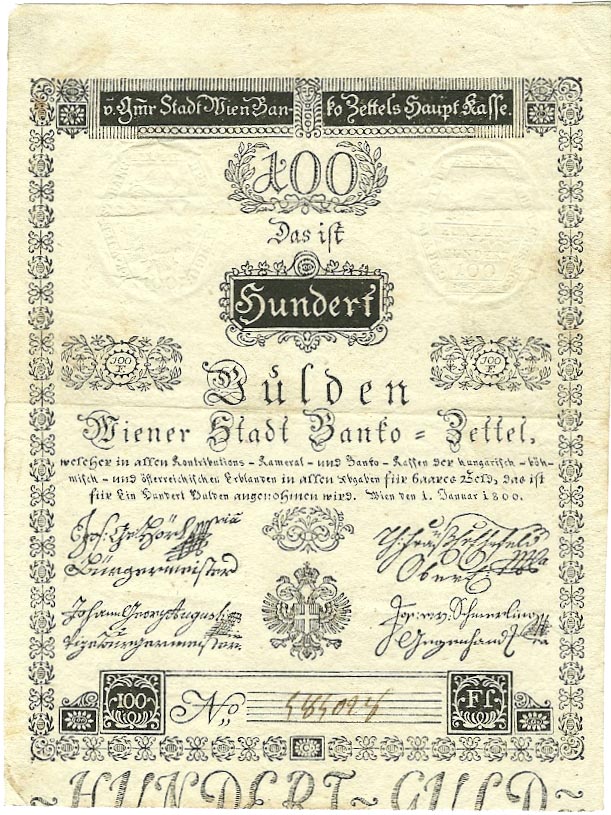 v. Gmr Stadt Wien Ban- ko Zettels Haupt Kasse.
100
Das ist
Hundert
100 F.
100 F.
Gulden
Wiener Stadt Banko = Zettel,
welcher in allen Kontributions - Kameral - und Banko - Kassen der hungarisch - böh-
misch - und österreichischen Erblanden in allen Abgaben für baares Geld, das ist
für Ein Hundert Gulden angenohmen wird. Wien den 1. Januar 1800.
Jos:
Bürgermeister
Ober
Johann Georg Augusti
Vizebürgermeister.
Jos: v. Schmerling
Gegenhand
100
No
Fl.
HUNDERT GULD